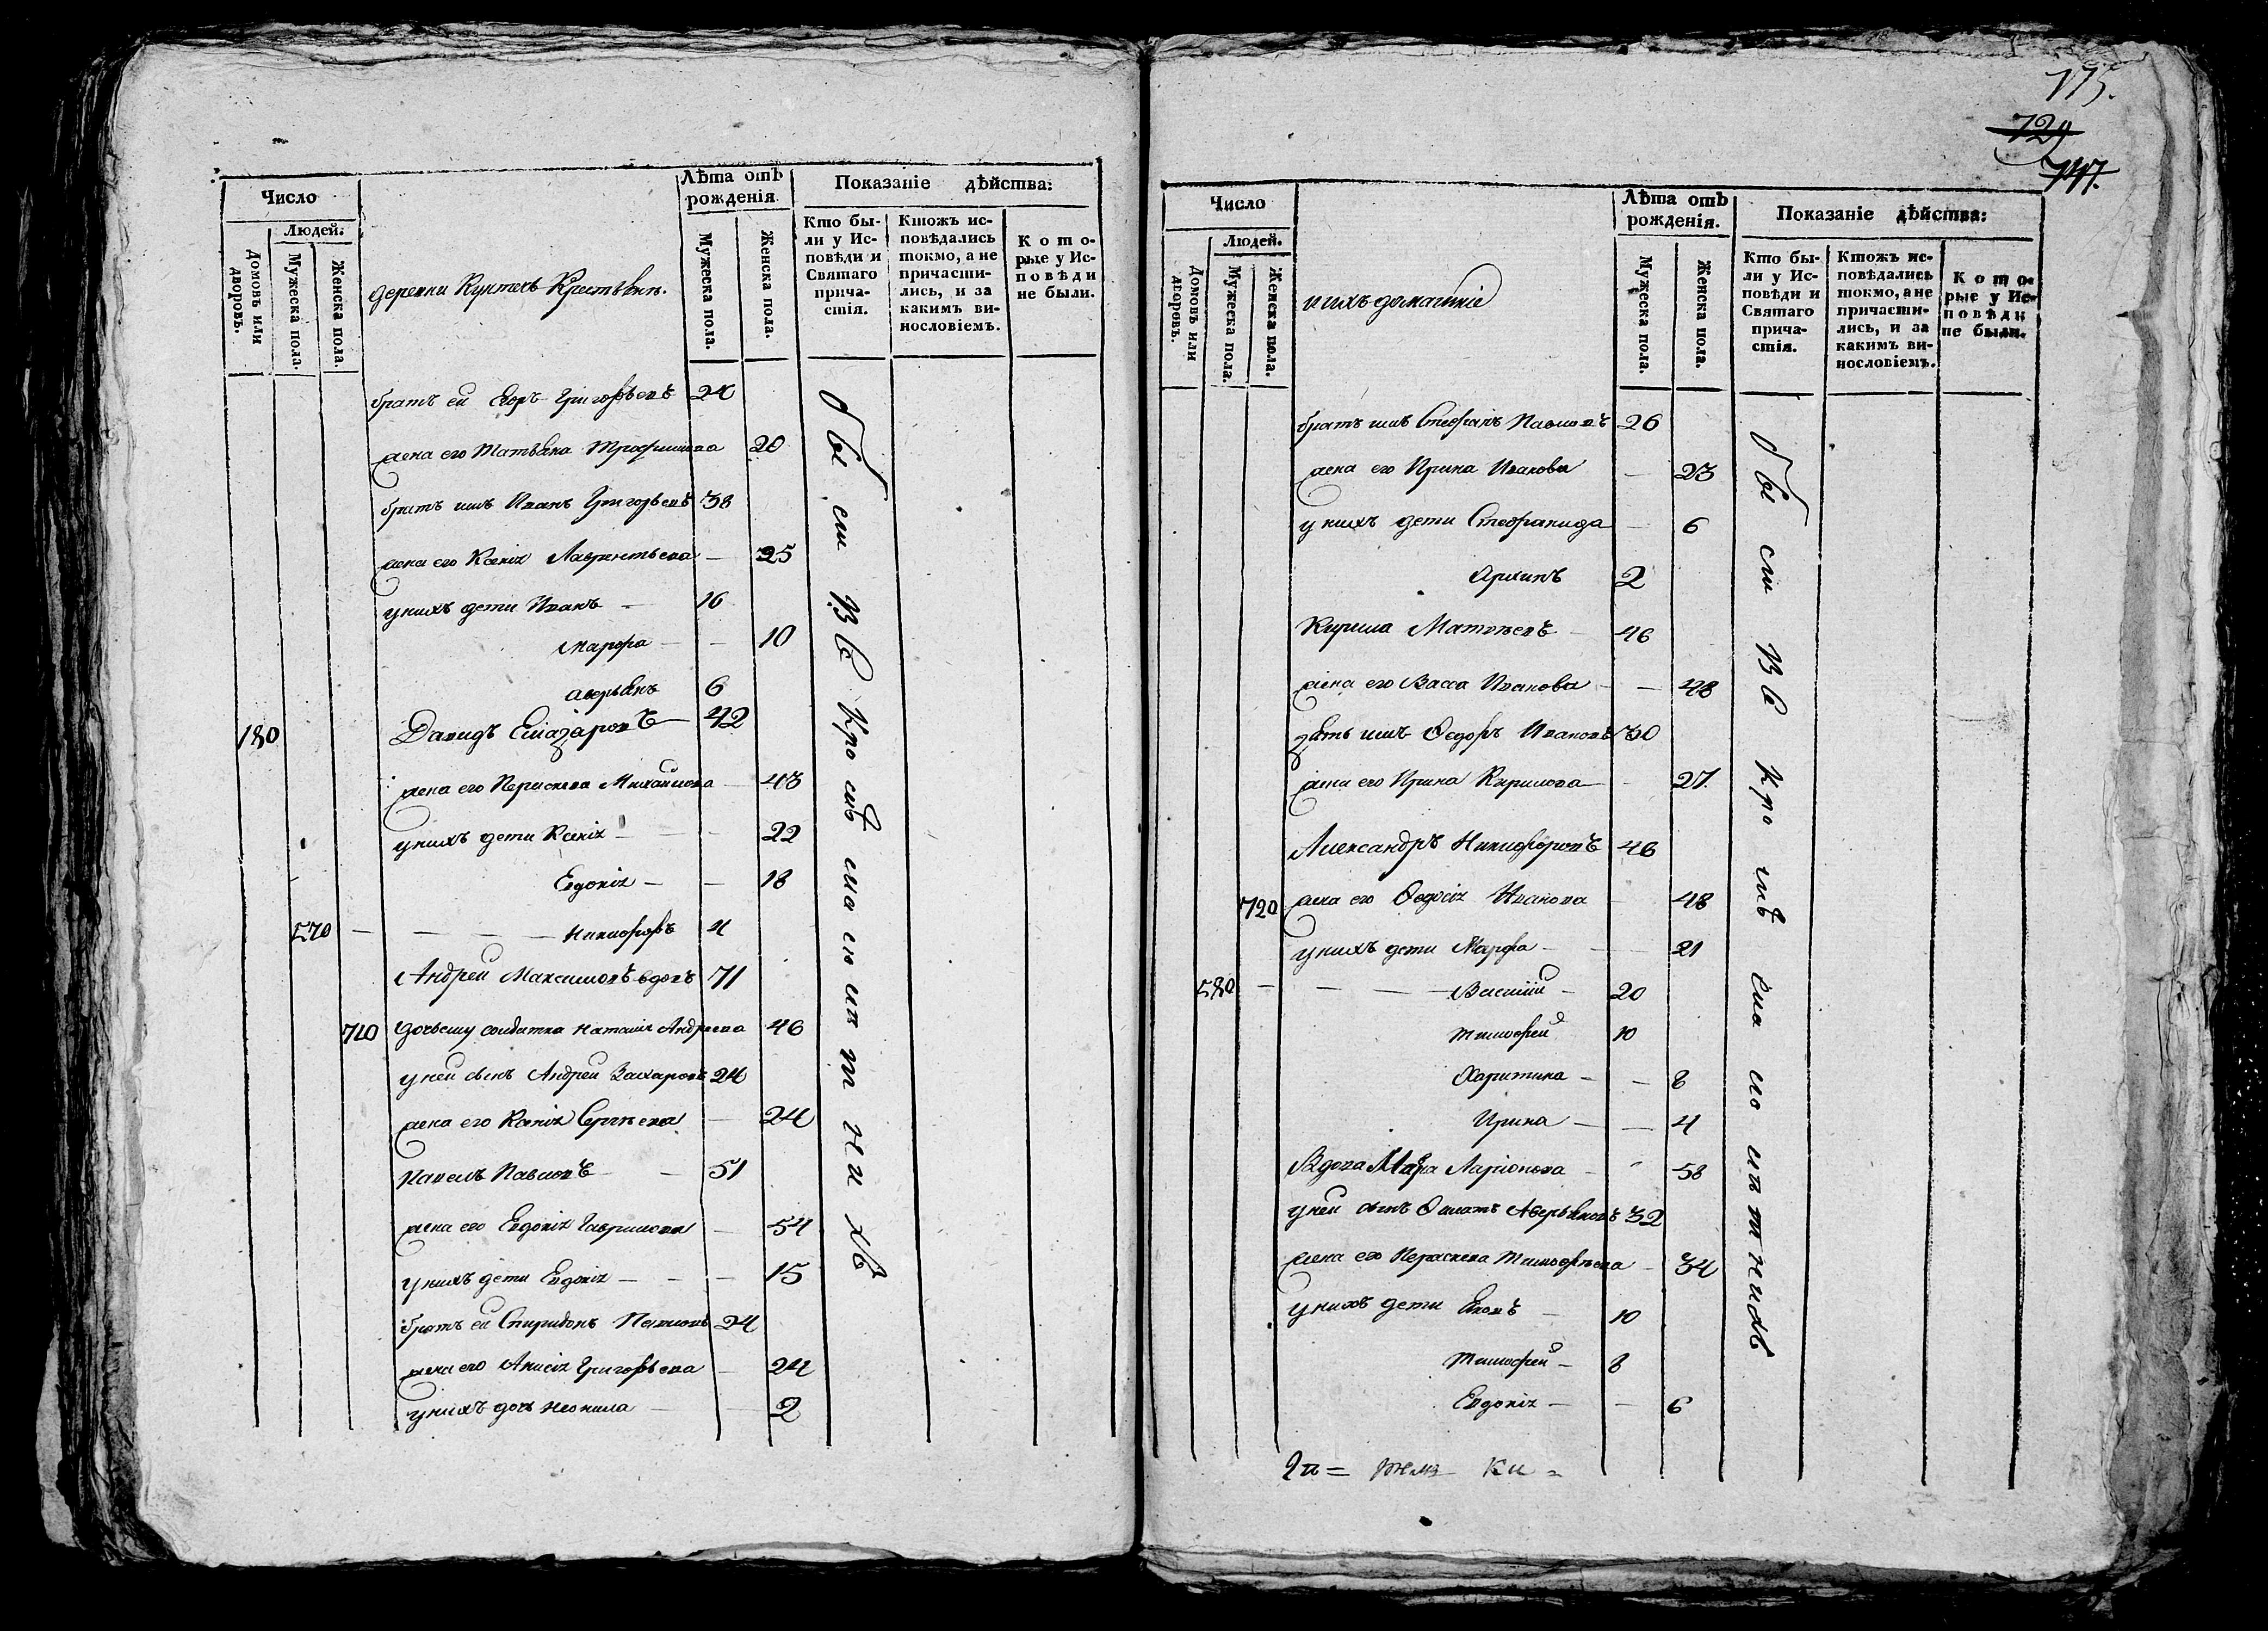 Число
Людей.
Домовъ или дворовъ.
Мужеска пола.
Женска пола.
деревни Крестьянъ.
Лѣта отъ рожденія
Мужеска пола.
Женска пола.
Показаніе дѣйства:
Кто были у Исповѣди и Святаго причастія.
Ктожъ исповѣдались токмо, а не причастились, и за какимъ винословіемъ.
Которые у Исповѣди не были.
братъ ей Егоръ Григорьевъ 24
жена его Татьяна Трофимова 20
братъ имъ Иванъ Григорьевъ 38
жена его Ксенія Лаврентьева — 35
у нихъ дети Иванъ — 16
Марфа — — 10
Аверьянъ 6
180 Давидъ Елазаровъ — 42
жена его Пераскева Михайлова — 43
у нихъ дети Ксенія — — — 22
Евдокія — — 18
570 — — — — — Никифоръ 4
Андрей Максимовъ вдовъ 71
710 дочь ему солдатка Наталія Андреева 46
у ней сынъ Андрей Захаровъ 24
жена его Ксенія Сергѣева — 24
Павелъ Павловъ — — 51
жена его Евдокія Гаврилова — 54
у нихъ дети Евдокія — — — 15
братъ ей Спиридонъ Павловъ 24
жена его Анисія Григорьева — 24
у нихъ дочь Неонила — — 2
Обыем Все кро мѣ мало лѣтнихъ
175.
729
747.
Число
Людей.
Домовъ или дворовъ.
Мужеска пола.
Женска пола.
и ихъ домашніе
Лѣта отъ рожденія.
Мужеска пола.
Женска пола.
Показаніе дѣйства:
Кто были у Исповѣди и Святаго причастія.
Ктожъ исповѣдались токмо, а не причастились, и за какимъ винословіемъ.
Которые у Исповѣди не были.
братъ имъ Стефанъ Павловъ 26
жена его Ирина Иванова — 23
у нихъ дети Стефанида — 6
Архипъ 2
Кирила Матвѣевъ — 46
жена его Васса Иванова — — 48
зять имъ Ѳедоръ Ивановъ 30
жена его Ирина Кирилова — — 27.
Александръ Никифоровъ 46
720 жена его Ѳедосія Иванова — 48
у нихъ дети Марфа — — — 21
580 — — — — Василій — 20
Тимофей 10
Харитина — — 8
Ирина — — 4
Вдова Марѳа Ларіонова — — 58
у ней сынъ Аверьяновъ 32
жена его Пераскева Тимофѣева — 34
у нихъ дети — 10
Тимофей — 8
Евдокія — — 6